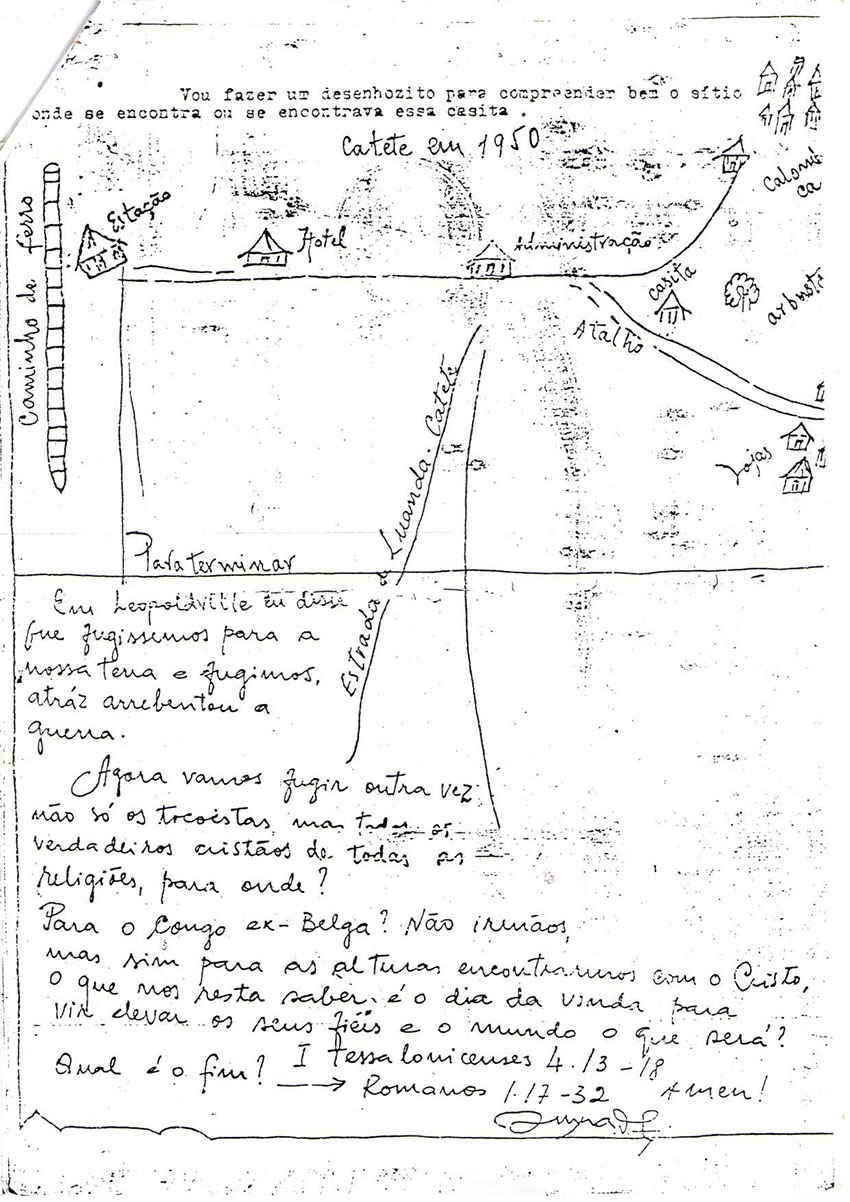 Vou fazer um desenhozito para compreender bem o sítio
onde se encontra ou se encontrava essa casita .
Catete em 1950
Caminho de ferro
Estação
Hotel
Administração
casita
Atalho
Lojas
Estrada de Luanda-Catete
Para terminar
Em Leopoldville eu disse
que fugissemos para a
nossa terra e fugimos,
atráz arrebentou a
guerra.
Agora vamos fugir outra vez
não só os tocoistas, mas todos os
verdadeiros cristãos de todas as
religiões, para onde?
Para o Congo ex-Belga? Não irmãos,
mas sim para as alturas encontrarmos com o Cristo,
O que nos resta saber é o dia da vinda para
vir elevar os seus fiéis e o mundo o que será?
Qual é o fim? I Tessalonicenses 4.13-18
Romanos 1.17-32 Amen!